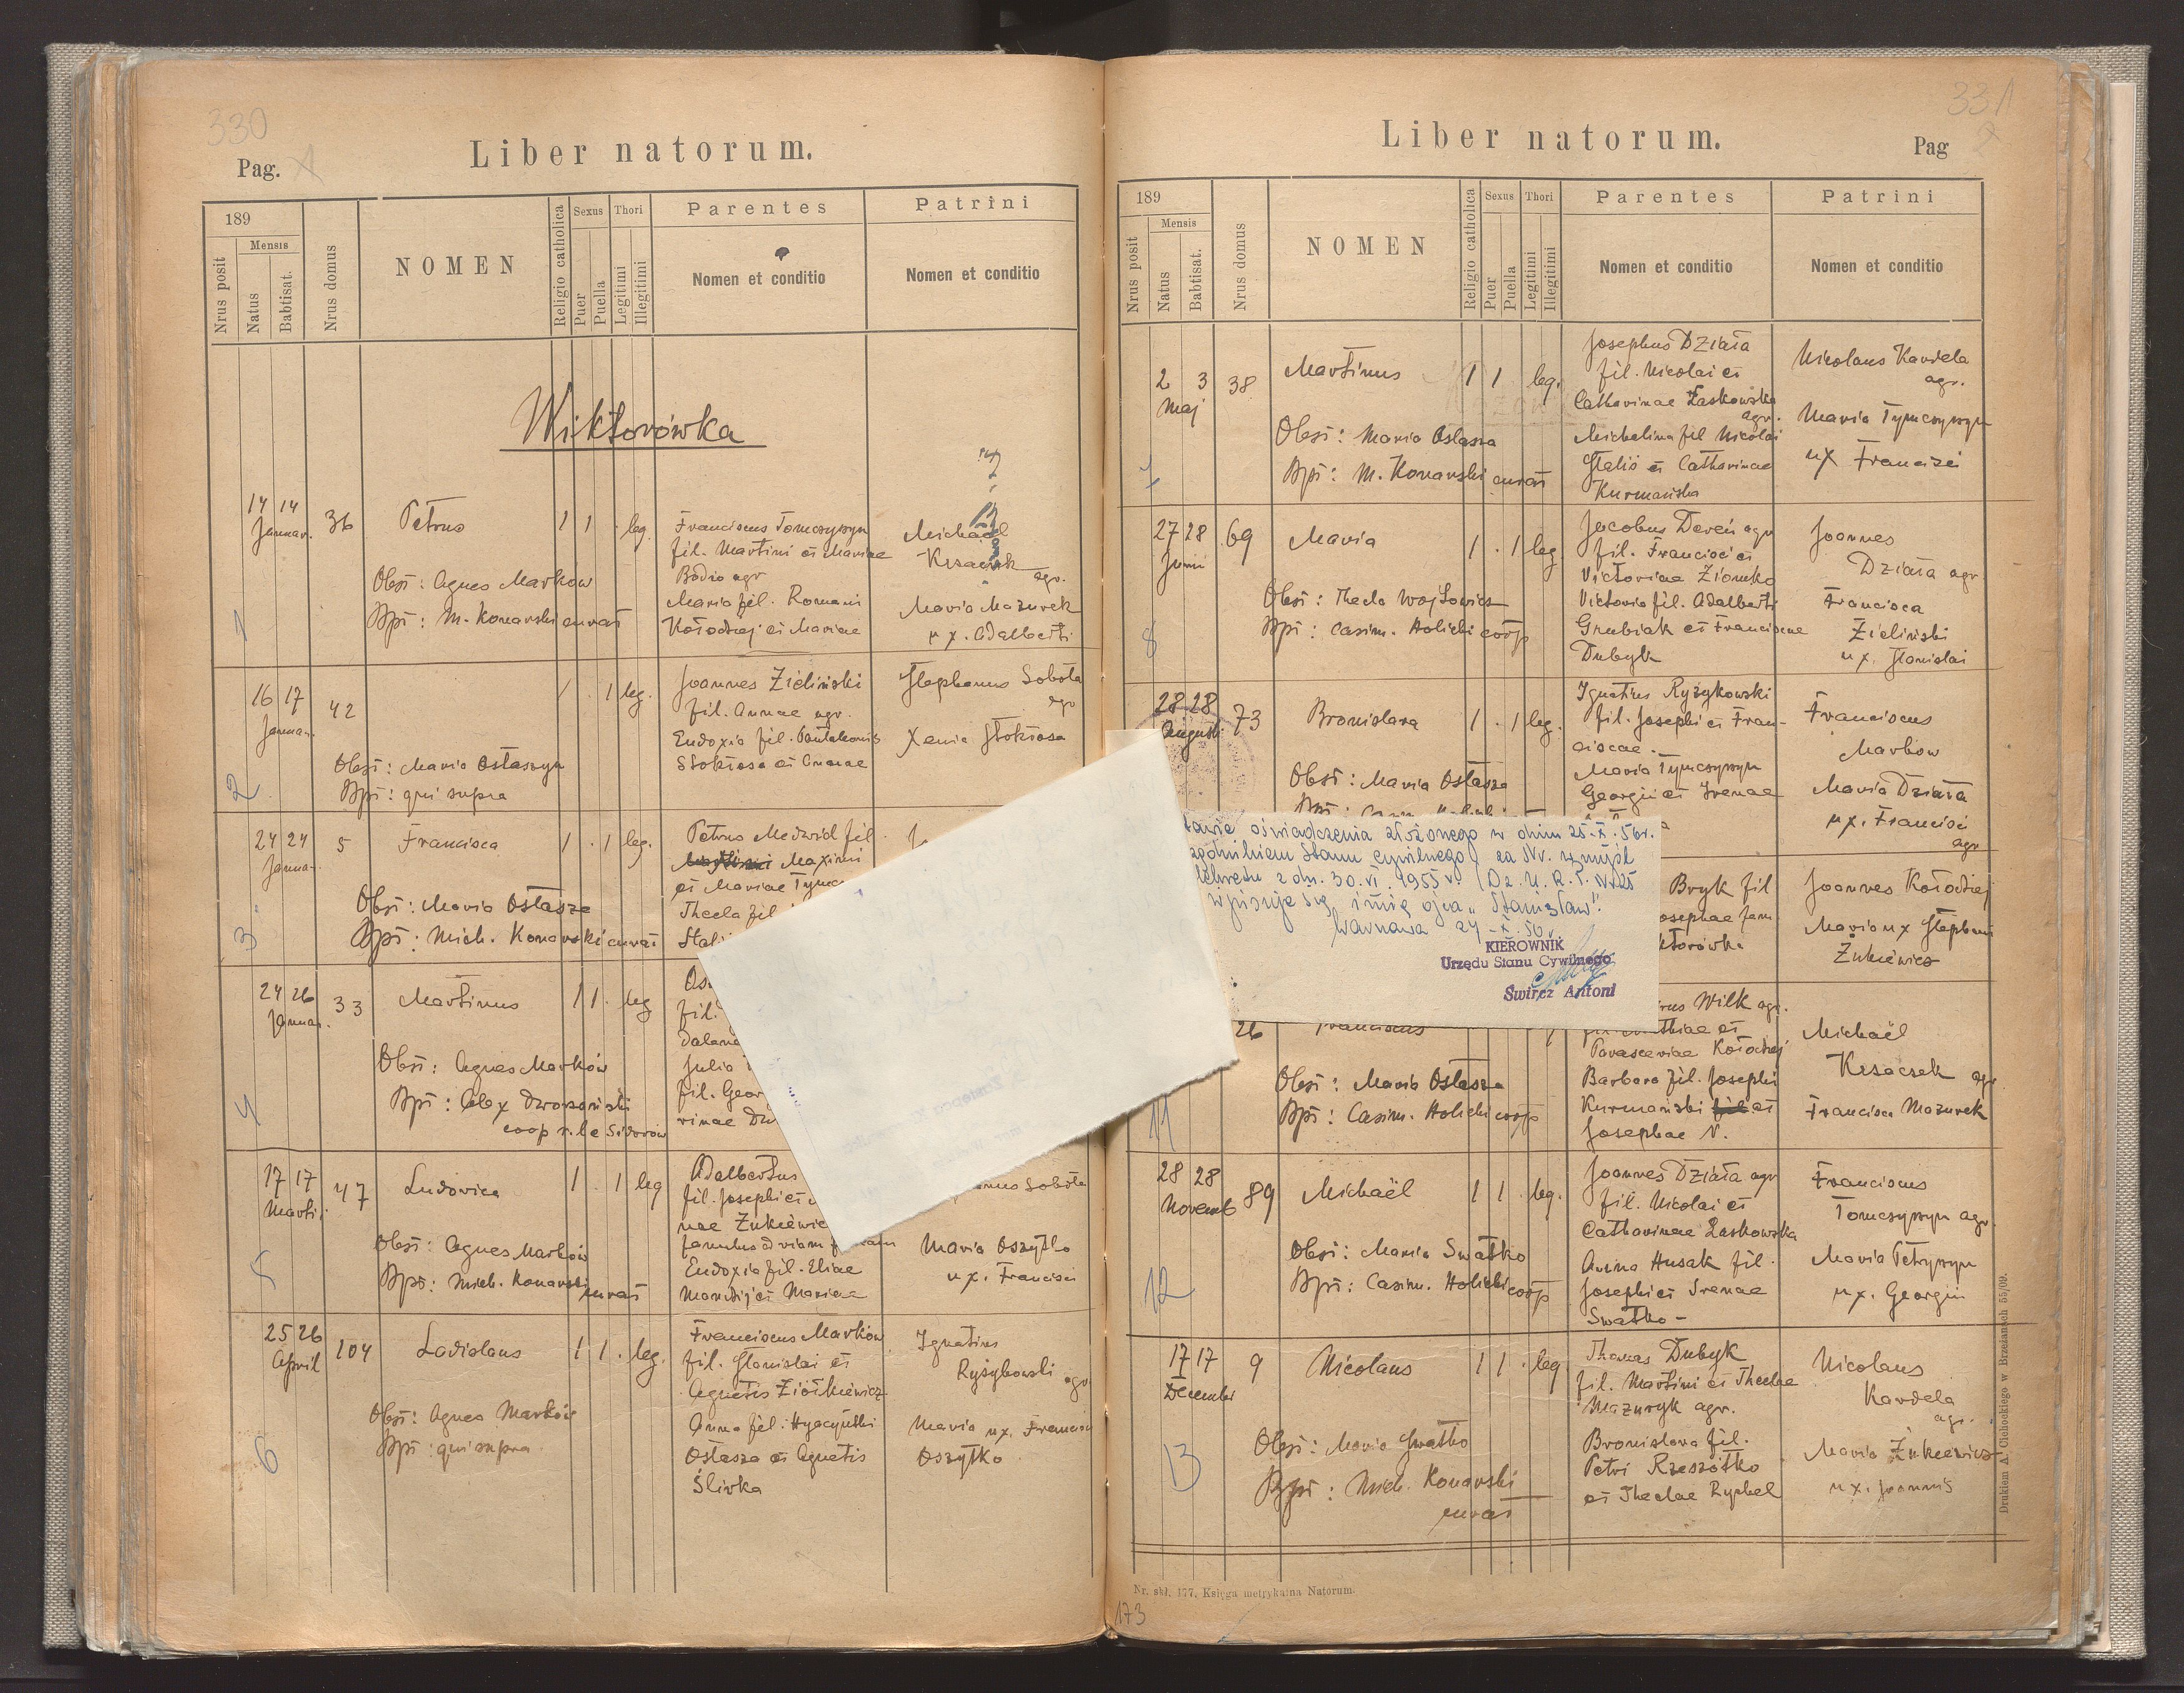 330
Pag.
Liber natorum.
189
Mensis
Nrus posit
Natus
Babtisat.
Nrus domus
NOMEN
Religio catholica
Sexus
Puer
Puella
Thori
Legitimi
Illegitimi
Parentes
Nomen et conditio
Patrini
Nomen et conditio
Wiktorówka
1
14 14
Januar.
36
Petrus
1 1 . leg.
Obst: Agnes Markow
Bpt: M. Konarski curat
Franciscus Tomczyszyn
fil. Martini et Mariae
Bodio agr
Maria fil. Romani
Kołodziej et Mariae
Michaël
Krzaczek
agr.
Maria Mazurek
ux. Adalberti
2
16 17
Januar.
42
1 . 1 leg.
Obst: Maria Ostaszyn
Bpt: qui supra
Joannes Zieliński
fil. Annae agr.
Eudoxia fil. Pantaleonis
Stokłosa et Annae
Stephanus Sobota
agr
Xenia Stokłosa
3
24 24
Januar.
5
Francisca
1 . 1 leg.
Obst: Maria Ostasze
Bpt: Mich. Konarski curat
Petrus Medwid fil.
Maximi
et Mariae
Thecla fil
4
24 26
Januar.
33
Martinus
1 1 . leg
Obst: Agnes Marków
Bpt: Alex Dworzański
coop r. l. e Sidorów
fil.
Julia
fil. Geor
5
17 17
Martii
47
Ludovica
1 . 1 leg
Obst: Agnes Marków
Bpt: Mich. Konarski curat
Adalbertus
fil. Josephi et
nae Żukiewic
famulus ad viam
Eudoxia fil. Eliae
Mandzij et Mariae
Sobota
Maria Oszytko
ux. Francisci
6
25 26
April
104
Ladislaus
1 1 . leg.
Obst: Agnes Marków
Bpt: qui supra
Franciscus Marków
fil. Stanislai et
Agnetis Ziółkiewicz
Anna fil. Hyacynthi
Ostasza et Agnetis
Śliwka
Ignatius
Ryżykowski agr.
Maria ux. Francisci
Oszytko
331
2
Liber natorum.
Pag
189
Mensis
Nrus posit
Natus
Babtisat.
Nrus domus
NOMEN
Religio catholica
Sexus
Puer
Puella
Thori
Legitimi
Illegitimi
Parentes
Nomen et conditio
Patrini
Nomen et conditio
2 3
Maj
38
Martinus
1 1 leg.
Obst: Maria Ostasza
Bpt: M. Konarski curat
Josephus Działa
fil. Nicolai et
Catharinae Laskowska
agr.
Michelina fil Nicolai
Stelió et Catharinae
Kurmańska
Nicolaus Kardela
agr.
Maria Tymczyszyn
ux Francisci
8
27 28
Junii
69
Maria
1 . 1 leg
Obst: Thecla Wojtowicz
Bpt: Casim. Holicki coop
Jacobus Dereń agr
fil. Francisci et
Victoriae Ziomko
Victoria fil. Adalberti
Grubiak et Franciscae
Dubyk
Joannes
Działa agr
Francisca
Zieliński
ux. Stanislai
28 28
Augusti
73
Bronislava
1 . 1 leg.
Obst: Maria Ostasza
Ignatius Ryżykowski
fil. Josephi et Fran-
ciscae.
Maria Tymczyszyn
Georgii et Irenae
Franciscus
Markow
Maria Działa
ux. Francisci
agr
tawie oświadczenia złożonego w dniu 25.X.56r.
Stanu cywilnego za Nr. w myśl
dekretu z dn. 30.VI.1955 r. (Dz. U. R. P. Nr 25
wpisuje się imię ojca „Stanisław".
Warszawa 24-X.56 r.
KIEROWNIK
Urzędu Stanu Cywilnego
Śwircz Antoni
Bryk fil
osephae fam.
ktorówka
Joannes Kołodziej
Maria ux Stephani
Żukiewicz
11
26
Franciscus
Obst: Maria Ostasza
Bpt: Casim. Holicki coop
rus Wilk agr.
thiae et
Parasceviae Kołodziej
Barbara fil. Josephi
Kurmański et
Josephae N.
Michaël
Krzaczek agr
Francisca Mazurek
12
28 28
Novemb
89
Michaël
1 1 . leg.
Obst: Maria Swatko
Bpt: Casim. Holicki coop
Joannes Działa agr
fil. Nicolai et
Catharinae Laskowska
Anna Husak fil.
Josephi et Irenae
Swatko -
Franciscus
Tomczyszyn agr.
Maria Petryszyn
ux. Georgii
13
17 17
Decembr
9
Nicolaus
1 1 . leg
Obst: Maria Swatko
Bpt: Mich. Konarski
curat
Thomas Dubyk
fil. Martini et Theclae
Mazuryk agr.
Bronislava fil.
Petri Rzeszótko
et Theclae Rychel
Nicolaus
Kardela
agr.
Maria Żukiewicz
ux. Joannis
Drukiem A. Cichockiego w Brzeżanach 55/09.
Nr. skł. 177. Księga metrykalna Natorum.
173